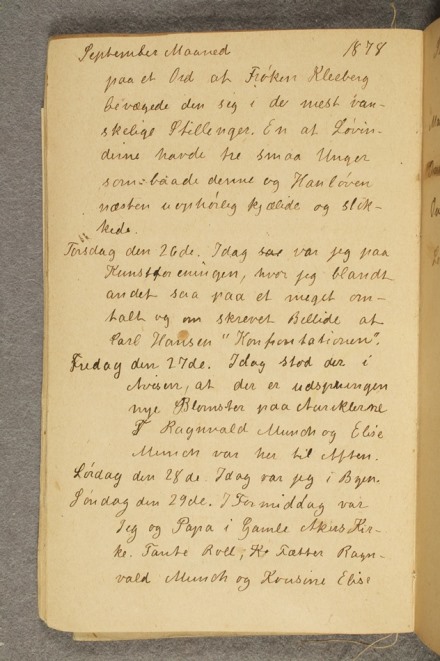 September Maaned 1878
paa et Ord af Frøken Kleeberg
bevægede den sig i de mest van-
skelige Stillenger. En af Løvin-
derne havde tre smaa Unger
som baade denne og Hanløven
næsten uophørlig kjælede og slik-
kede.
Torsdag den 26de. Idag saa var jeg paa
Kunstforeningen, hvor jeg blandt
andet saa paa et meget om-
talt og om skrevet Billide af
Carl Hansen "Konfrontationen".
Fredag den 27de. Idag stod der i
Avisen, at der er udsprungen
nye Blomster paa Auriklerne
F Ragnvald Munch og Elise
Munch var her til Aften.
Lørdag den 28de. Idag var jeg i Byen.
Søndag den 29de. I Formiddag var
Jeg og Papa i Gamle Akers Kir-
ke. Tante Roll, K Fætter Ragn-
vald Munch og Kousine Elise